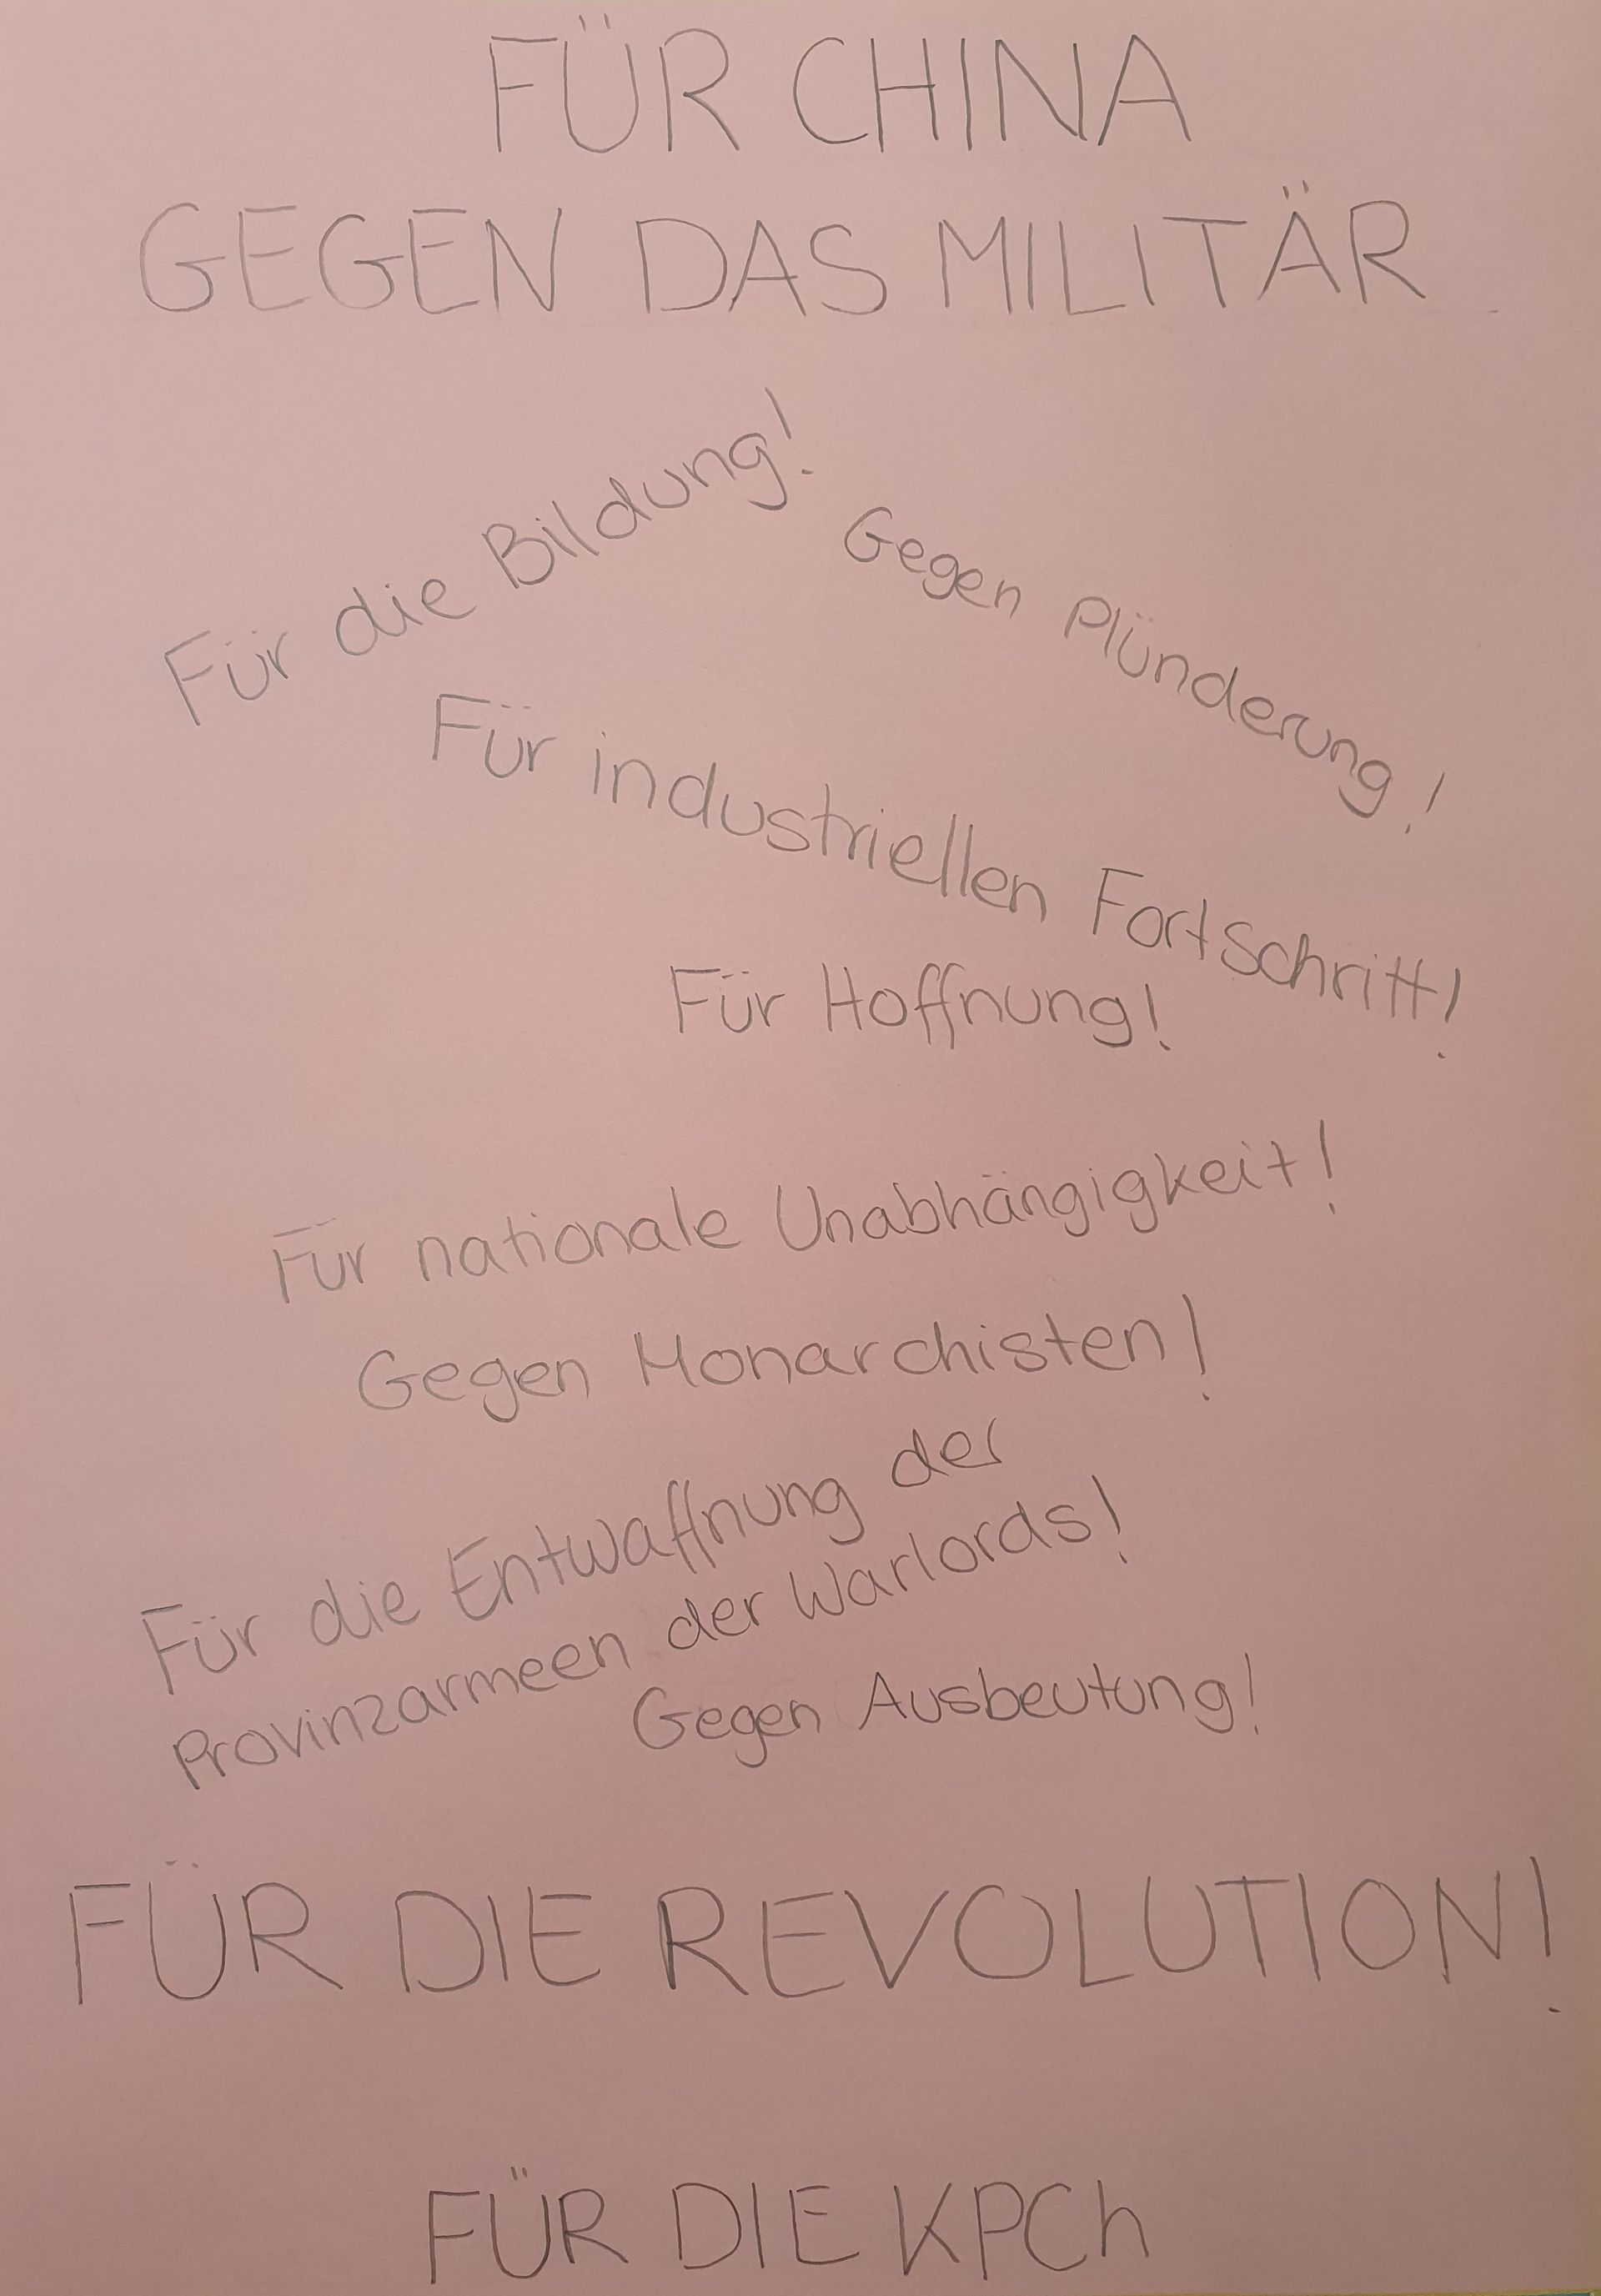 FÜR CHINA
GEGEN DAS MILITÄR
Für die Bildung!
Gegen Plünderung!
Für industriellen Fortschritt!
Für Hoffnung!
Für nationale Unabhängigkeit!
Gegen Monarchisten!
Für die Entwaffnung der
Provinzarmeen der Warlords!
Gegen Ausbeutung!
FÜR DIE REVOLUTION!
FÜR DIE KPCh